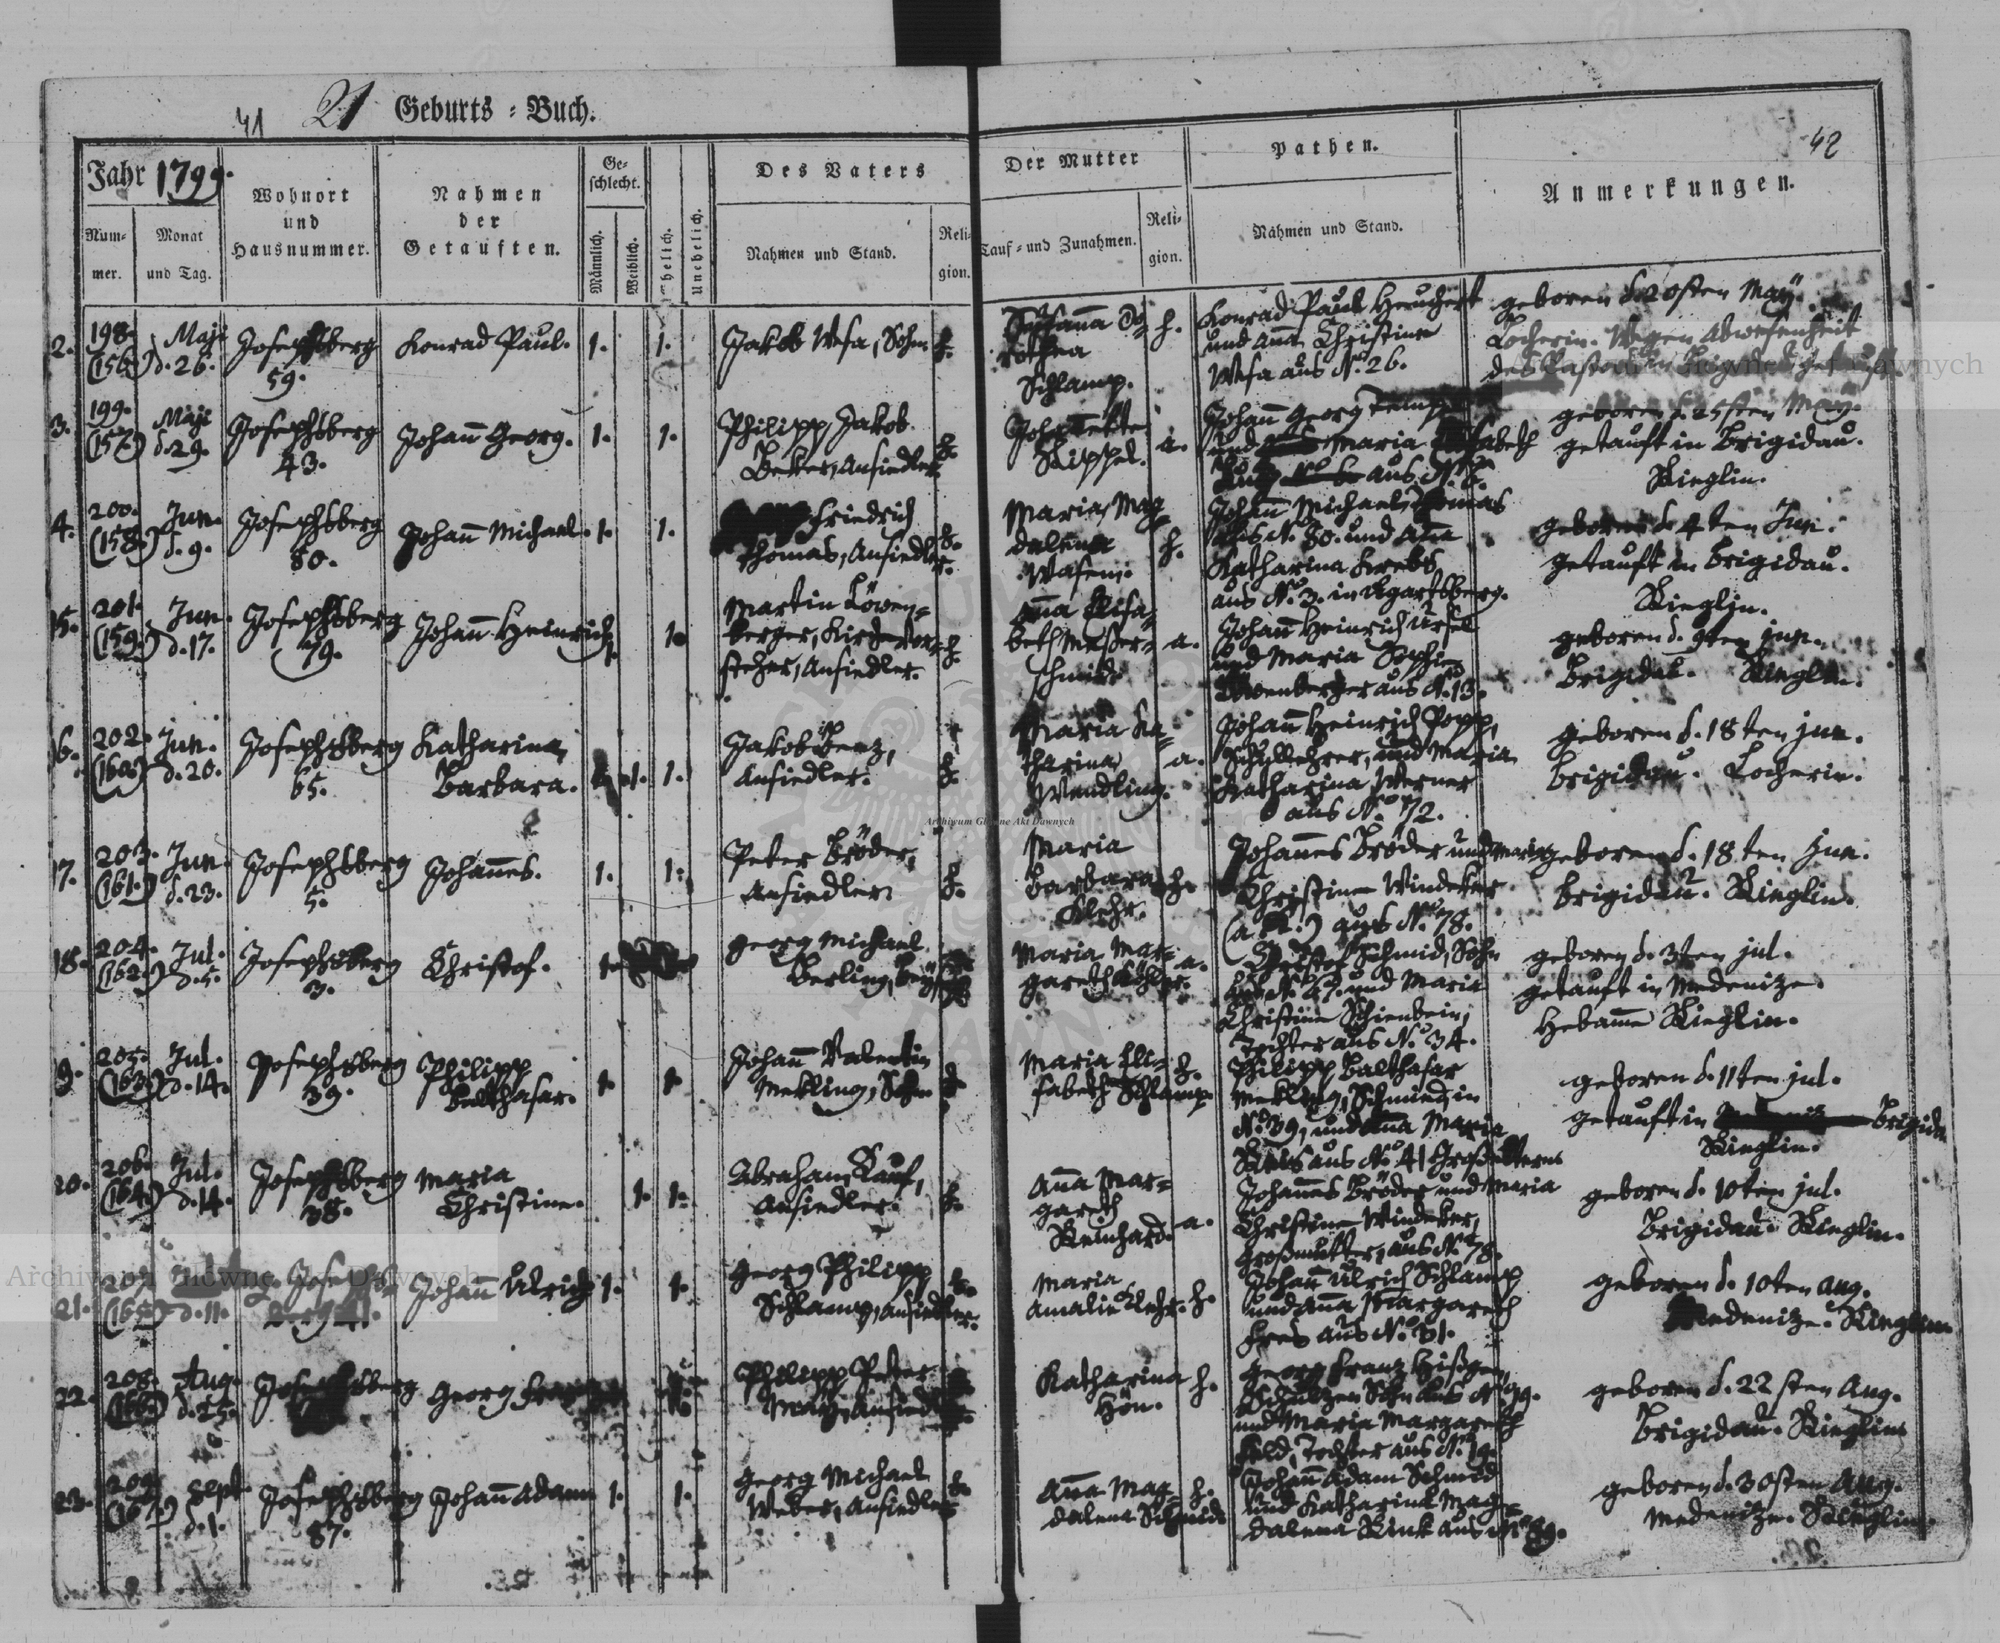 41 21 Geburts-Buch.
42
Jahr 1799.
Num-
mer.
Monat
und Tag.
Wohnort
und
Hausnummer.
Nahmen
der
Getauften.
Ge-
schlecht.
Männlich.
Weiblich.
Ehelich.
Unehelich.
Des Vaters
Nahmen und Stand.
Reli-
gion.
Der Mutter
Tauf- und Zunahmen.
Reli-
gion.
Pathen.
Nahmen und Stand.
Anmerkungen.
2.
198.
(156.)
Maji
d. 26.
Josephsberg
59.
Konrad Paul.
1.
1.
Jakob Wesa, Sohn
h.
Susanna Do-
rothea
Schlamp.
h.
Konrad Paul Heuchert
und Anna Christine
Wesa aus No. 26.
geboren d. 20sten May.
Locherin. Wegen Abwesenheit
des Pastors in Brigidau getauft.
3.
199.
(157.)
Maji
d. 29.
Josephsberg
43.
Johann Georg.
1.
1.
Philipp Jakob
Beker, Ansiedler.
h.
Kippel.
a.
Johann Georg
und Maria Elisabeth
aus No.
geboren d. 25sten May.
getauft in Brigidau.
Kieglin.
4.
200.
(158.)
Jun.
d. 9.
Josephsberg
80.
Johann Michael.
1.
1.
Friedrich
Thomas, Ansiedler.
h.
Maria Mag-
dalena
Wasem.
h.
Johann Michael Thomas
aus No. 80. und Anna
Katharina Krebs
aus No. 3. in Ugartsberg.
geboren d. 4ten Jun.
getauft in Brigidau.
Kieglin.
15.
201.
(159.)
Jun.
d. 17.
Josephsberg
79.
Johann Heinrich
1.
1.
Martin Löwen-
berger, Kirchenvor-
steher, Ansiedler.
h.
Anna Elisa-
beth Messer-
schmidt
a.
Johann Heinrich Ursel
und Maria Sophie
Löwenberger aus No. 13.
geboren d. 9ten Jun.
Brigidau. Kieglin.
16.
202.
(160.)
Jun.
d. 20.
Josephsberg
65.
Katharina
Barbara.
1.
1.
Jakob Benz,
Ansiedler.
h.
Maria Ka-
tharina
Wendling.
a.
Johann Heinrich Popp,
Schullehrer, und Maria
Katharina Werner
aus No. 72.
geboren d. 18ten Jun.
Brigidau. Locherin.
17.
203.
(161.)
Jun.
d. 23.
Josephsberg
5.
Johannes.
1.
1.
Peter Bröder,
Ansiedler.
h.
Maria
Barbara
Klehr.
h.
Johannes Bröder und Maria
Christine Windeker
aus No. 78.
geboren d. 18ten Jun.
Brigidau. Kieglin.
18.
204.
(162.)
Jul.
d. 5.
Josephsberg
3.
Christof.
1.
Georg Michael
Berling,
Maria Mar-
gareth Köhler.
a.
Christof Schmid, Sohn
aus No. 47. und Maria
Christine Schienbein,
Tochter aus No. 34.
geboren d. 3ten Jul.
getauft in Medenize.
Hebamme Kieglin.
19.
205.
(163.)
Jul.
d. 14.
Josephsberg
39.
Philipp
Balthasar.
1.
1.
Johann Valentin
Mekling, Sohn
h.
Maria Eli-
sabeth Schlamp.
h.
Philipp Balthasar
Mekling, Schmied in
No. 39, und Anna Maria
aus No. 41 Großeltern
geboren d. 11ten Jul.
getauft in Brigidau
Kieglin.
20.
206.
(164.)
Jul.
d. 14.
Josephsberg
38.
Maria
Christine.
1.
1.
Abraham Rauf,
Ansiedler.
h.
Anna Mar-
gareth
Reinhard.
a.
Johannes Bröder und Maria
Christine Windeker,
Großmutter, aus No. 78.
geboren d. 10ten Jul.
Brigidau. Kieglin.
21.
207.
(165.)
d. 11.
Josephs-
berg 41.
Johann Ulrich
1.
1.
Georg Philipp
Schlamp, Ansiedler.
h.
Maria
Amalie Klehr.
h.
Johann Ulrich Schlamp
und Anna Margareth
aus No. 81.
geboren d. 10ten Aug.
Medenize. Kieglin.
22.
208.
(166.)
Aug.
d. 25.
Josephsberg
Georg Franz
Philipp Peter
May, Ansiedler
Katharina
Hön.
h.
Georg Franz Hißgen,
Schulzen Sohn aus No. 99.
und Maria Margareth
Feld, Tochter aus No. 19.
geboren d. 22sten Aug.
Brigidau. Kieglin.
23.
209.
(167.)
Sept.
d. 1.
Josephsberg
87.
Johann Adam
1.
1.
Georg Michael
Weber, Ansiedler
h.
Anna Mag-
dalena Schmidt
h.
Johann Adam Schmid
und Katharina Mag-
dalena Rink aus No. 89.
geboren d. 30sten Aug.
Medenize. Kieglin.
Archiwum Główne Akt Dawnych